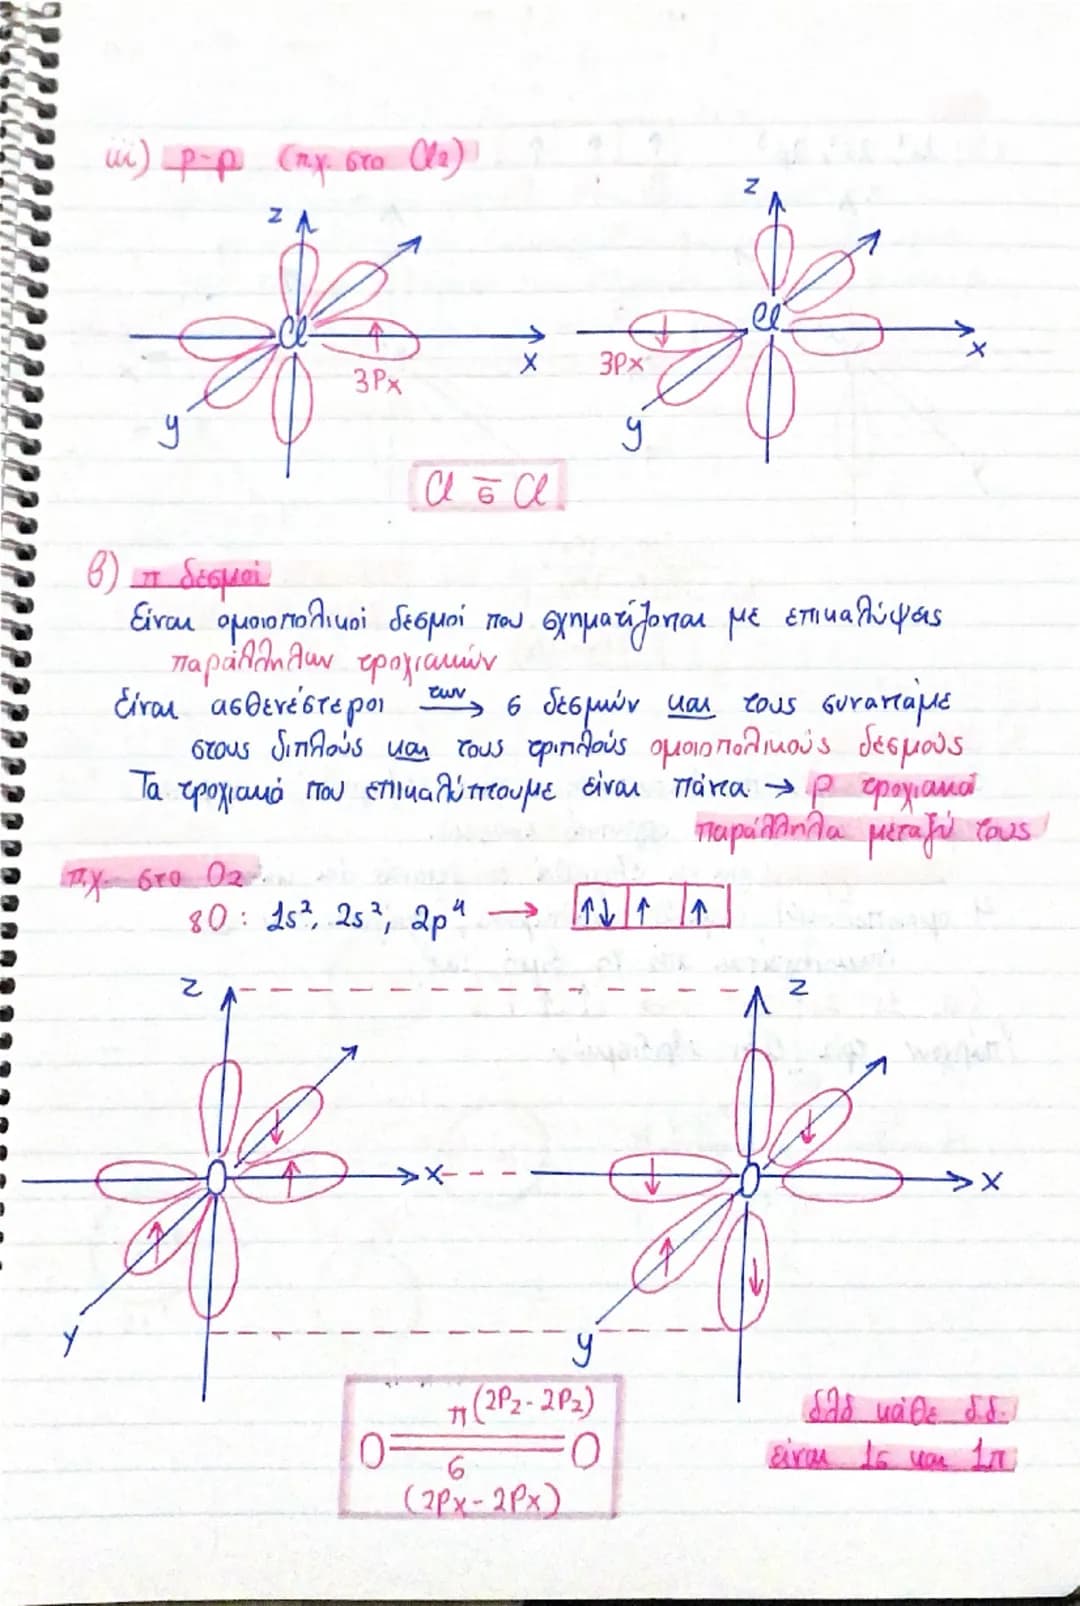 iii) p-p (πχ. στο Cl2)
z z
Cl Cl
x x
3Px 3Px
y y
Cl — Cl
σ
β) π δεσμοί
Είναι ομοιοπολικοί δεσμοί που σχηματίζονται με επικαλύψεις
παράλληλων τροχιακών
Είναι ασθενέστεροι των → σ δεσμών και τους συναντάμε
στους διπλούς και τους τριπλούς ομοιοπολικούς δεσμούς
Τα τροχιακά που επικαλύπτουμε είναι πάντα → p τροχιακά
παράλληλα μεταξύ τους
π.χ. στο O2
8O: 1s², 2s², 2p⁴ → ↑↓ ↑ ↑
z z
O x O x
y y
π (2Pz - 2Pz)
O = O
σ
(2Px - 2Px)
δλδ κάθε δ.δ.
είναι 1σ και 1π